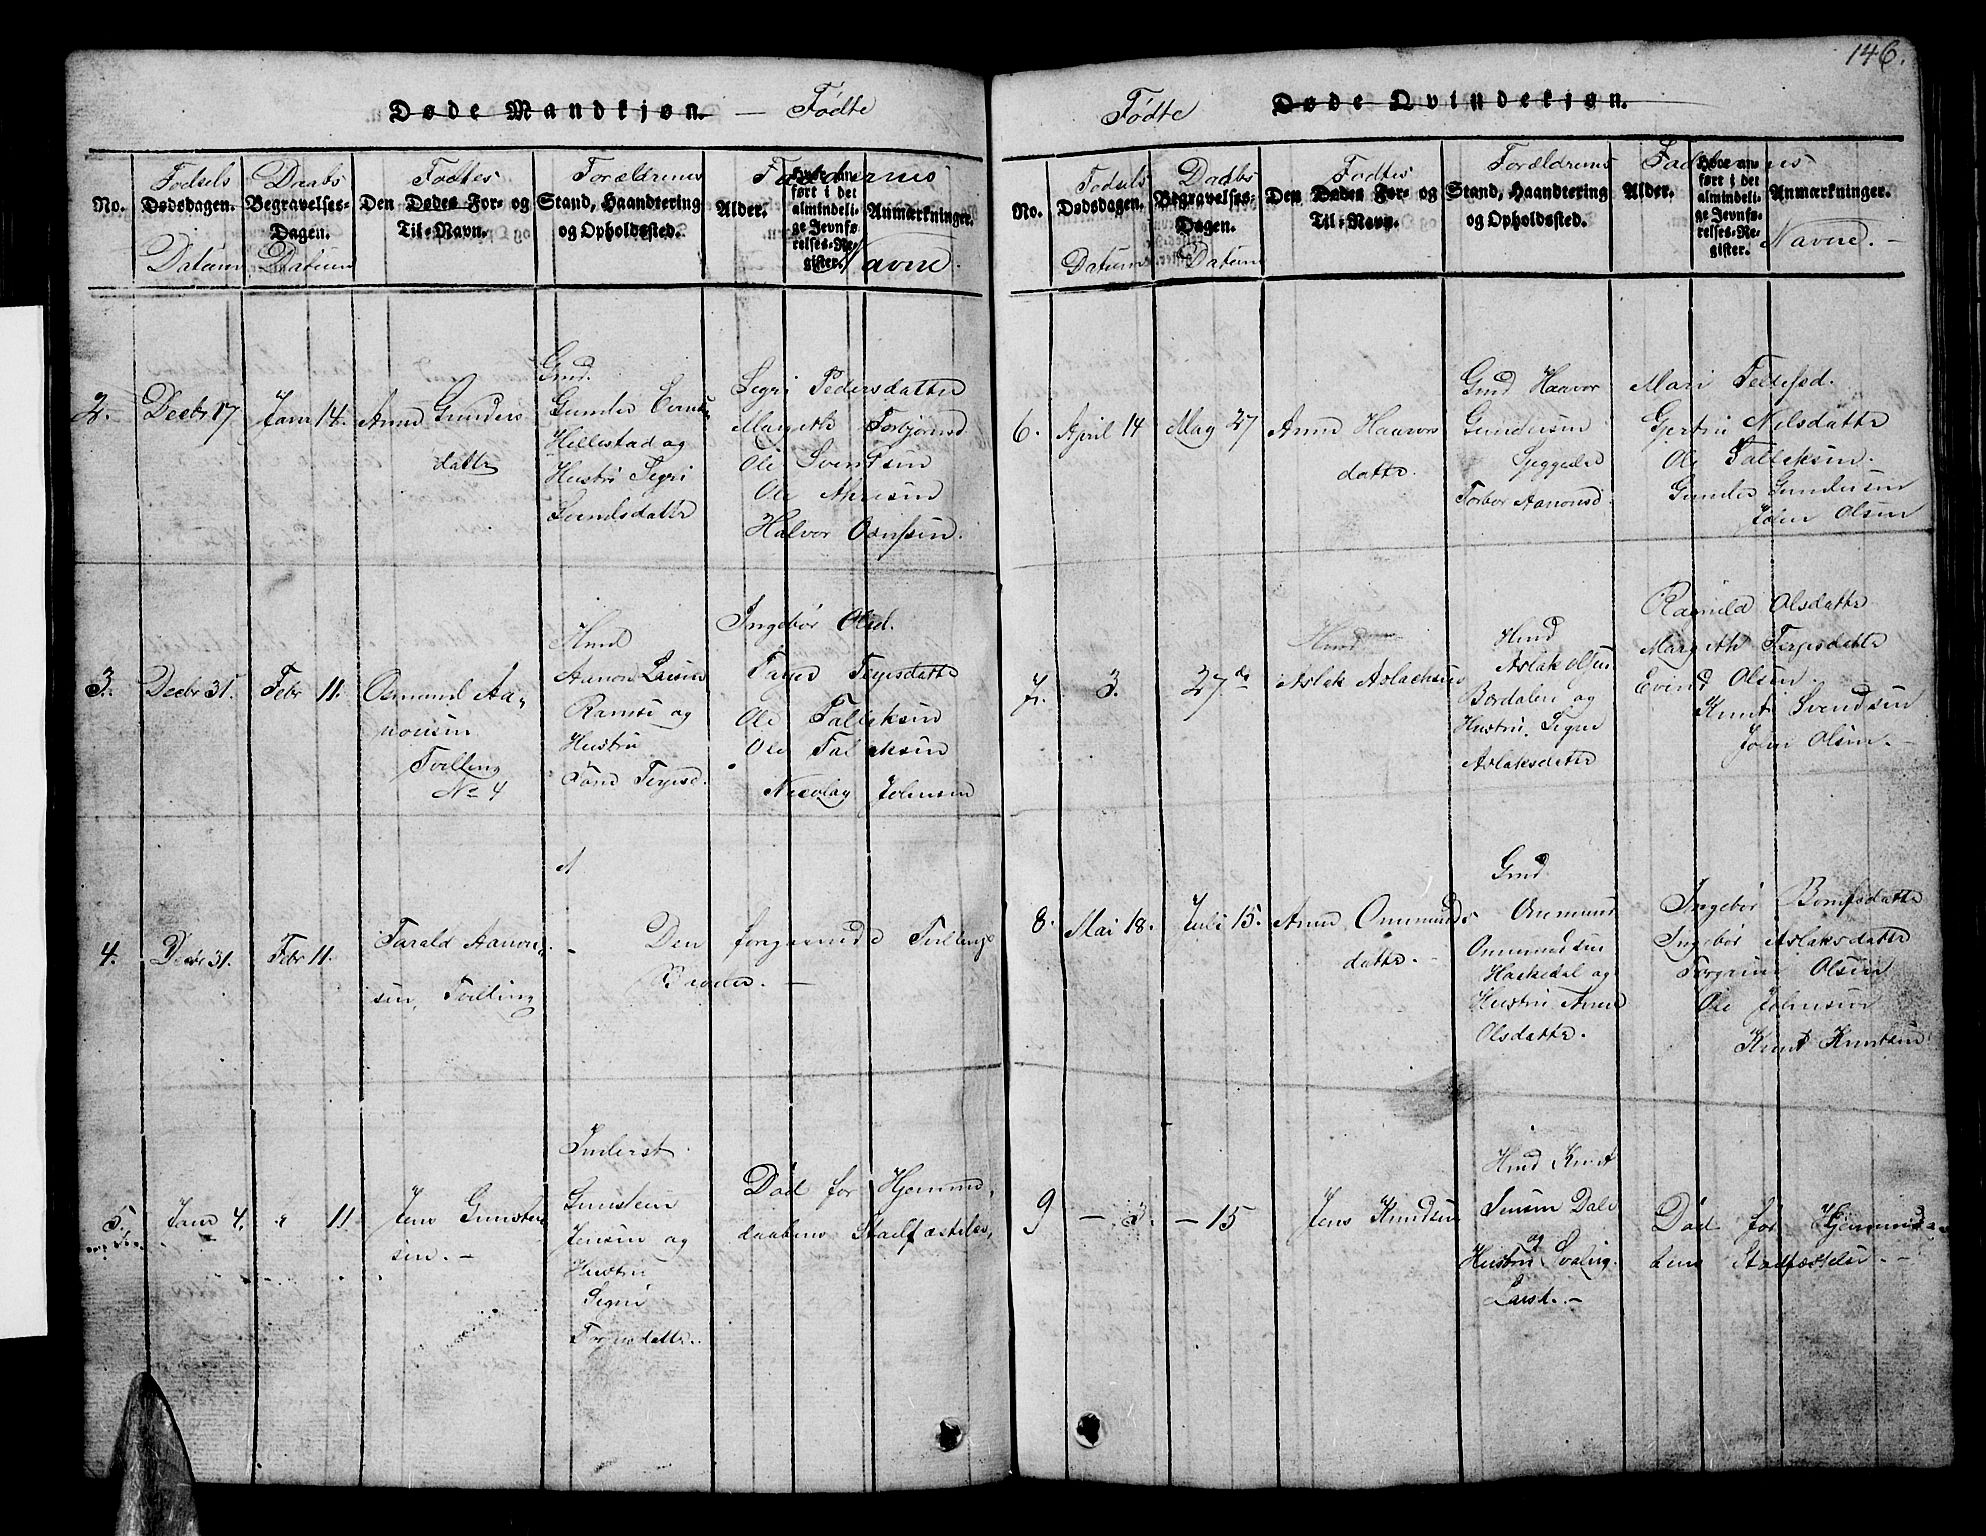 146.
Døde Mandkjøn. — Fødte
No.
Fødsels
Dødsdagen.
Datum
Daabs
Begravelses-
Dagen.
Datum
Fødtes
Den Dødes For- og
Til-Navn.
Forældrenes
Stand, Haandtering
og Opholdssted.
Faddernes
Alder.
Hvor an-
ført i det
almindeli-
ge Jevnfø-
relses-Re-
gister.
Anmærkninger.
Navne.
2. Decbr 17 Janr 14. Anne Gunders
datte
Gmd.
Gunder
Hillestad og
Hustru Segri
Svendsdatte
Segri Pedersdatte
Margethe Torbjørnsd
Ole Svendsen
Ole
Halvor
3. Decbr 31. Febr 11. Osmund Aa-
nonsen
Tvilling
No 4
Hmd
Aanon
Ramse og
Hustru
Tone Terjesd.
Ingebør Olsd.
Terjesdatte
Ole Tallaksen
Ole Talaksen
Nicolay Johnsen
4. Decbr 31. Febr 11. Tarald Aanon-
sen, Tvilling
Den forgaaende Tvillings
Broder. —
5. Janr 4. " 11. Jens Gunsten
sen. —
Inderst
Gunsten
Jensen og
Hustru
Segri
Torjusdatte.
Død før Hjemme-
daabens Stadfæstelse,
Fødte Døde Qvindekjøn.
No.
Fødsels
Dødsdagen.
Datum
Daabs
Begravelses-
Dagen.
Datum
Fødtes
Den Dødes For- og
Til-Navn.
Forældrenes
Stand, Haandtering
og Opholdssted.
Faddernes
Alder.
Hvor an-
ført i det
almindeli-
ge Jevnfø-
relses-Re-
gister.
Anmærkninger.
Navne. —
6. April 14 May 27 Anne Haavors
datte.
Gmd Haavor
Gundersen
Torbor Aanonsd
Mari Tellefsd.
Gjertru Nilsdatte
Ole Tallaksen.
Gunder Gundersen
John Olsen
7. 3. 27de Hmd Aslak Aslachsen
Hmd
Aslak Olsen
Bordalen og
Hustru Signe
Aslaksdatte
Ramild Olsdatte
Margethe Terjesdatte
Evind Olsen.
Knut Svendsen
John Olsen. —
8. Mai 18. Juli 15. Anne Ommunds
datte. —
Gmd.
Ommund
Ommundsen
Haskedal og
Hustru Anne
Olsdatte.
Ingebør
Ingebør Aslaksdatte
Torgrim Olsen
Ole Johnsen
Knut Knutsen
9 — 3. — 15 Jens Knudsen
Hmd Knut
Jensen Dale
og
Hustru Svalug
Larsd. —
Død før Hjemmeda-
bens Stadfæstelse. —